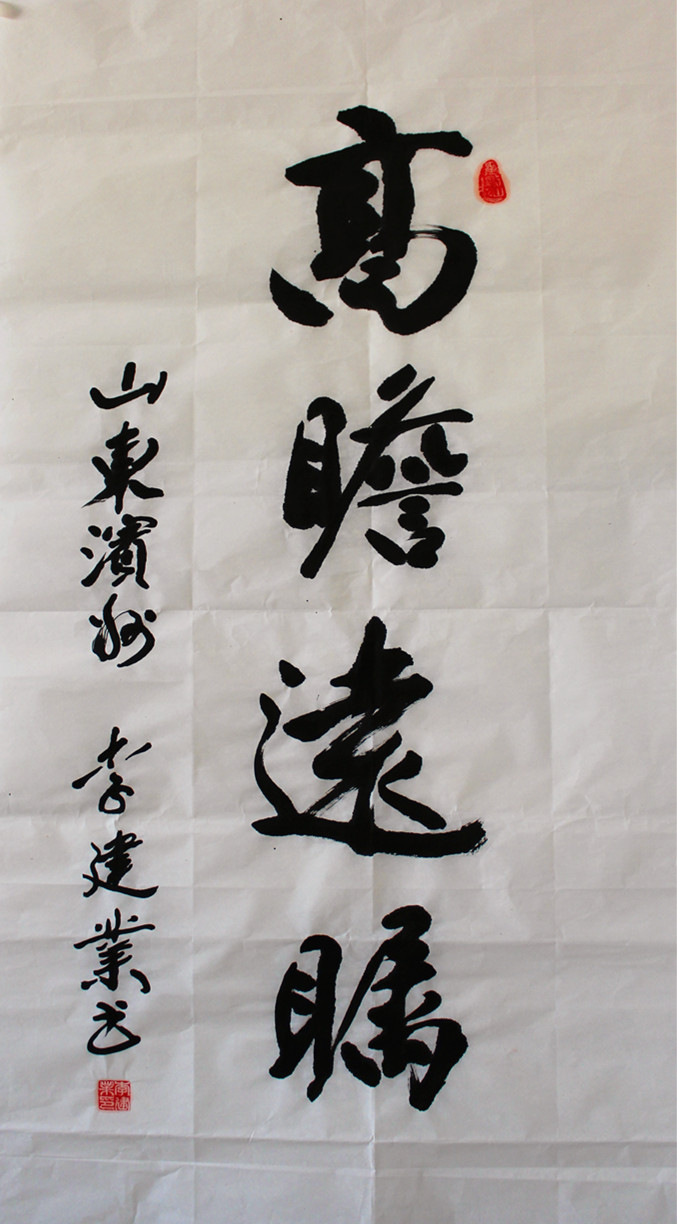 高瞻遠瞩
山東濱州 李建業书